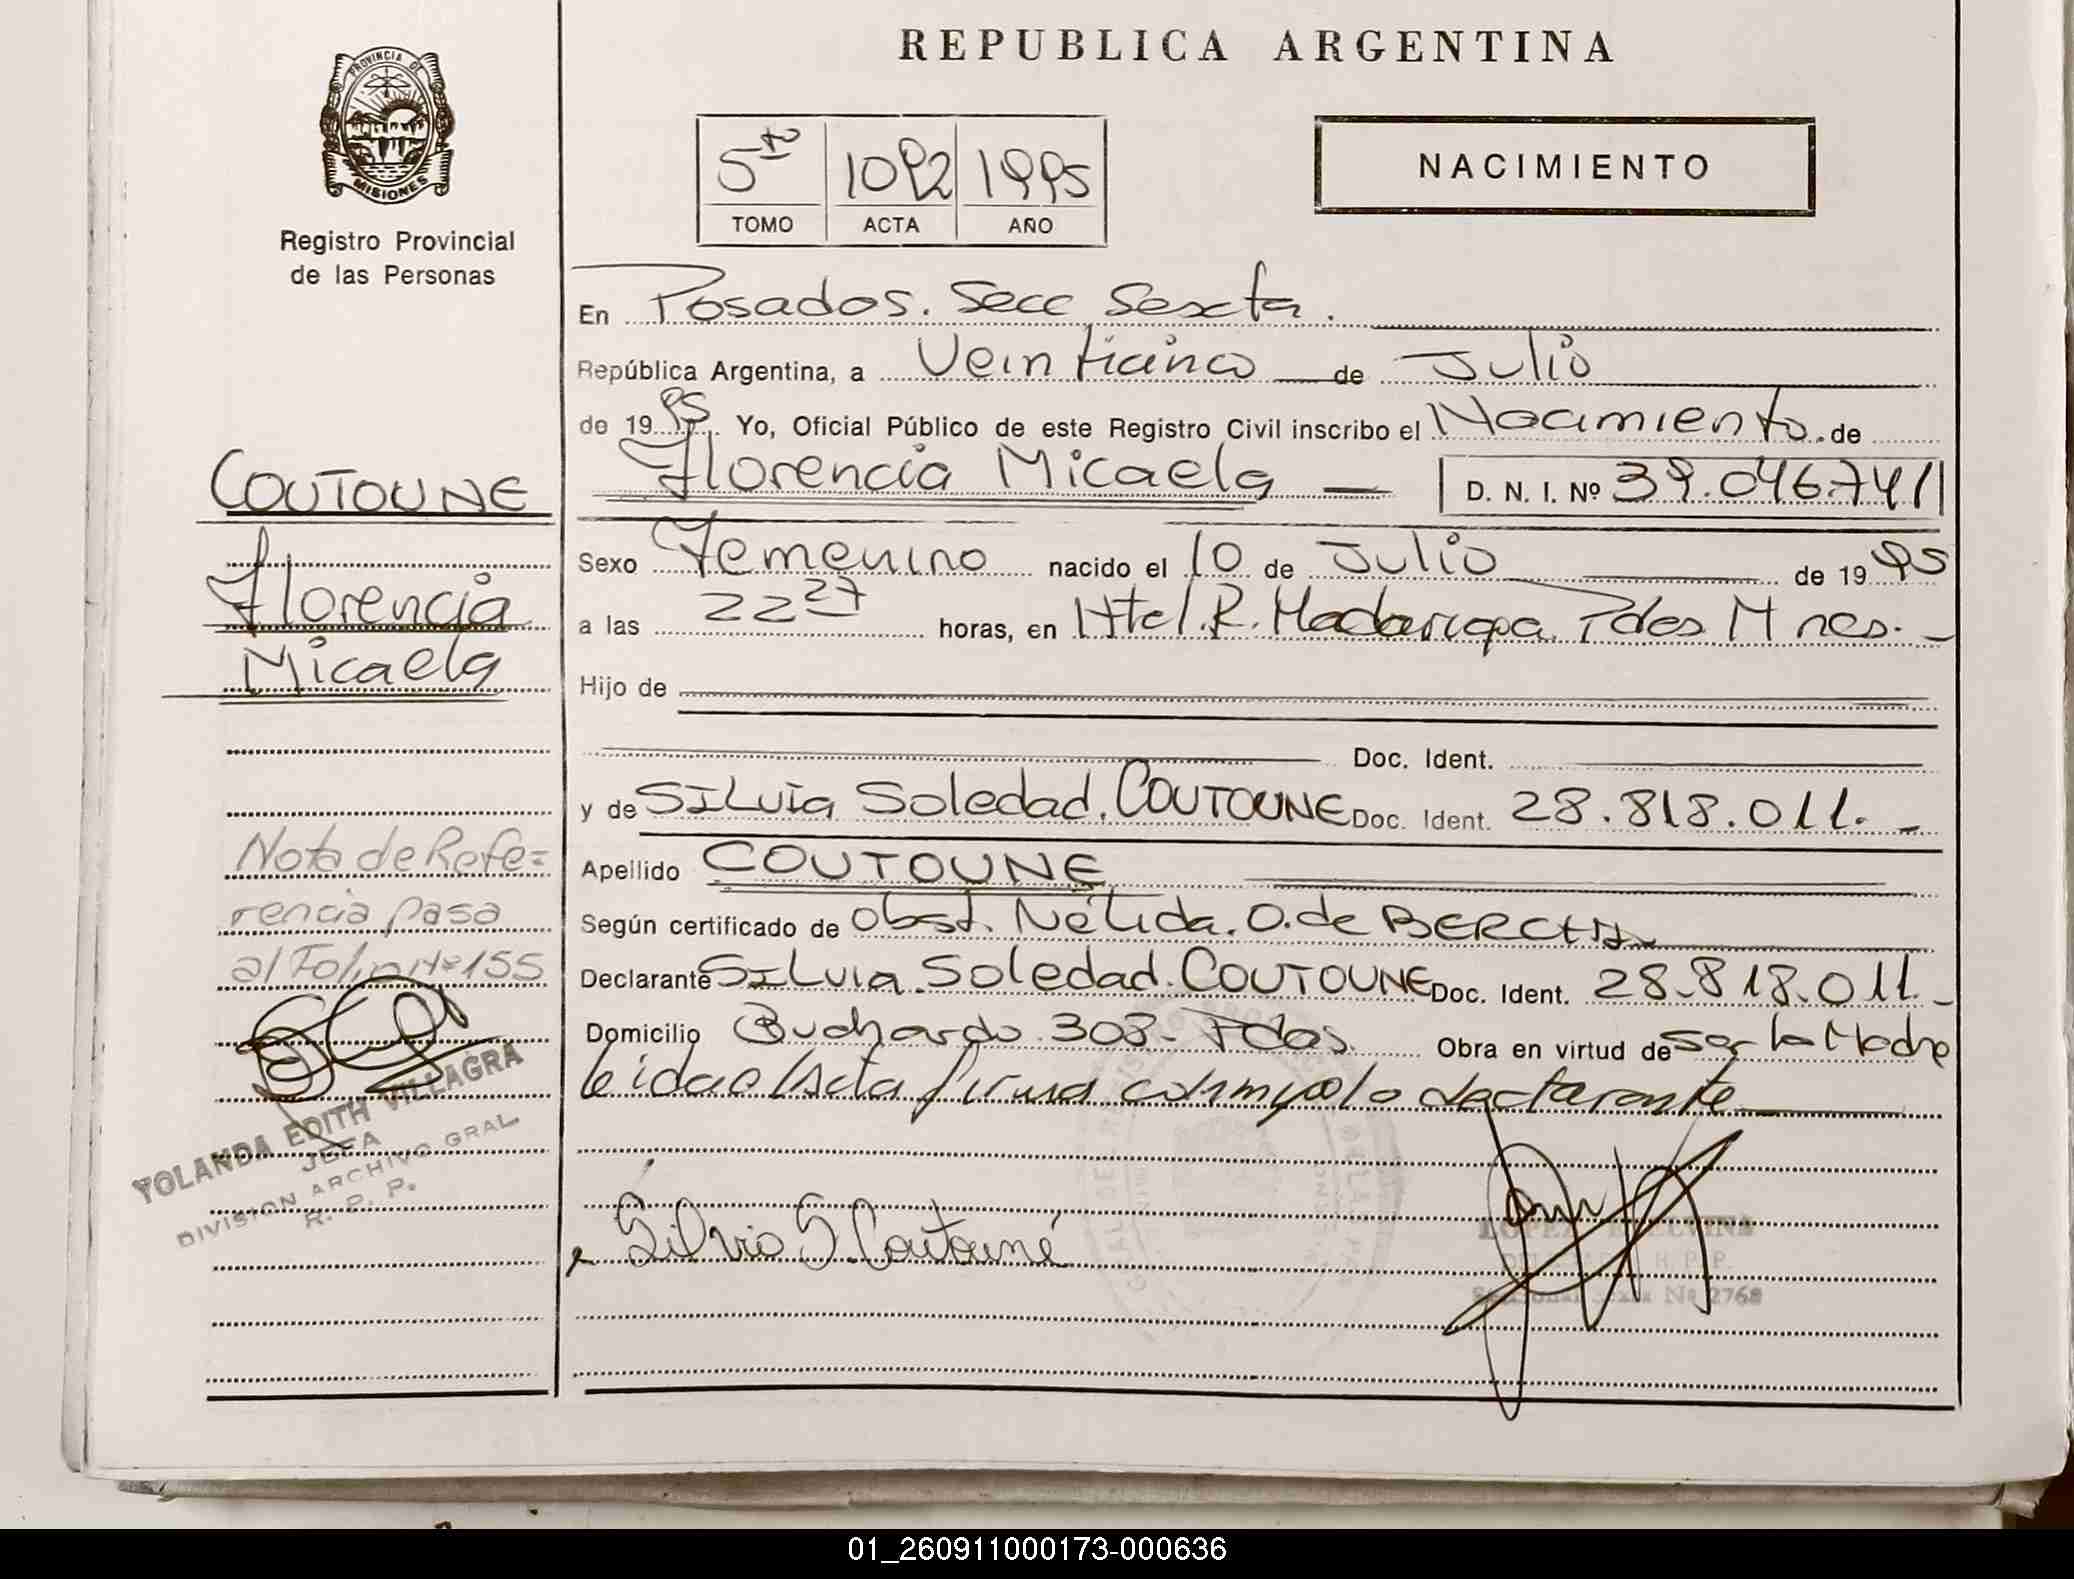 REPUBLICA ARGENTINA
PROVINCIA DE
MISIONES
Registro Provincial
de las Personas
5to 1092 1995
TOMO ACTA AÑO
NACIMIENTO
En Posadas. Secc Sexta.
República Argentina, a Veinticinco de Julio
de 1995 Yo, Oficial Público de este Registro Civil inscribo el Nacimiento de
Florencia Micaela D. N. I. Nº 39.046.741
Sexo Femenino nacido el 10 de Julio de 1995
a las 22 27 horas, en Htel. R. Madariaga Pdas Mnes.
Hijo de
Doc. Ident.
y de Silvia Soledad. COUTOUNE Doc. Ident. 28.818.011.
Apellido COUTOUNE
Según certificado de Obst. Nélida. O. de
Declarante Silvia. Soledad. COUTOUNE Doc. Ident. 28.818.011.
Domicilio Buchardo 303 - Pdas. Obra en virtud de Ser la Madre
leida el Acta firma conmigo la declarante
Silvia S. Coutouné
LOPEZ
R. P. P.
Nº 2768
COUTOUNE
Florencia
Micaela
Nota de Refe=
rencia pasa
al Folio Nº 155
YOLANDA EDITH VILLAGRA
JEFA
DIVISION ARCHIVO GRAL
R. P. P.
01_260911000173-000636